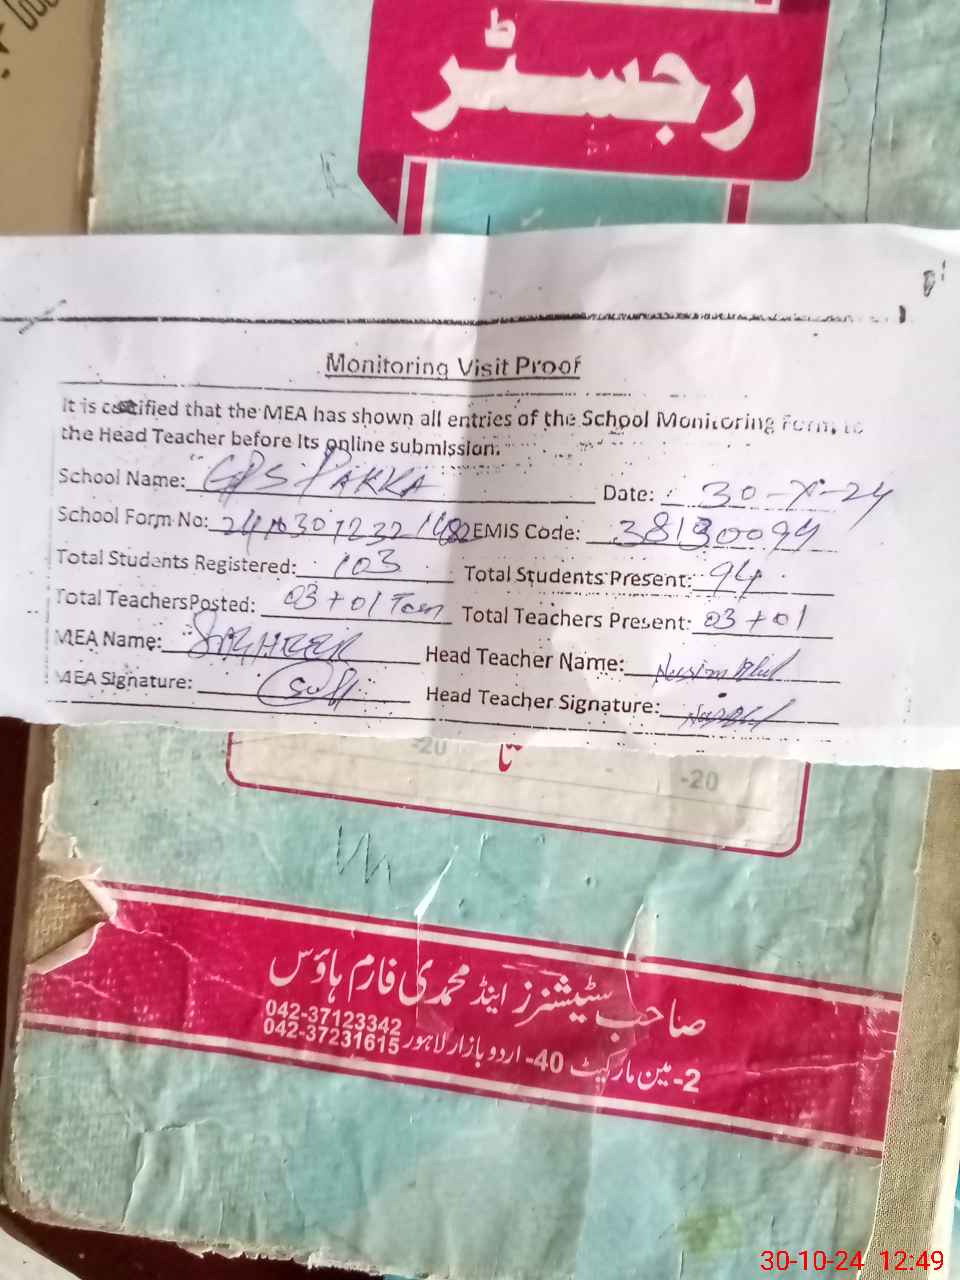 رجسٹر
Monitoring Visit Proof
It is certified that the MEA has shown all entries of the School Monitoring Form, to
the Head Teacher before its online submission.
School Name: GPS PAKKA Date: 30-X-24
School Form No: EMIS Code: 38130094
Total Students Registered: 103 Total Students Present: 94
Total TeachersPosted: 03+01 Total Teachers Present: 03+01
MEA Name: Head Teacher Name:
MEA Signature: Head Teacher Signature:
-20 تا -20
صاحب سٹیشنرز اینڈ محمدی فارم ہاؤس
042-37123342
042-37231615
2-مین مارکیٹ 40- اردو بازار لاہور
30-10-24 12:49